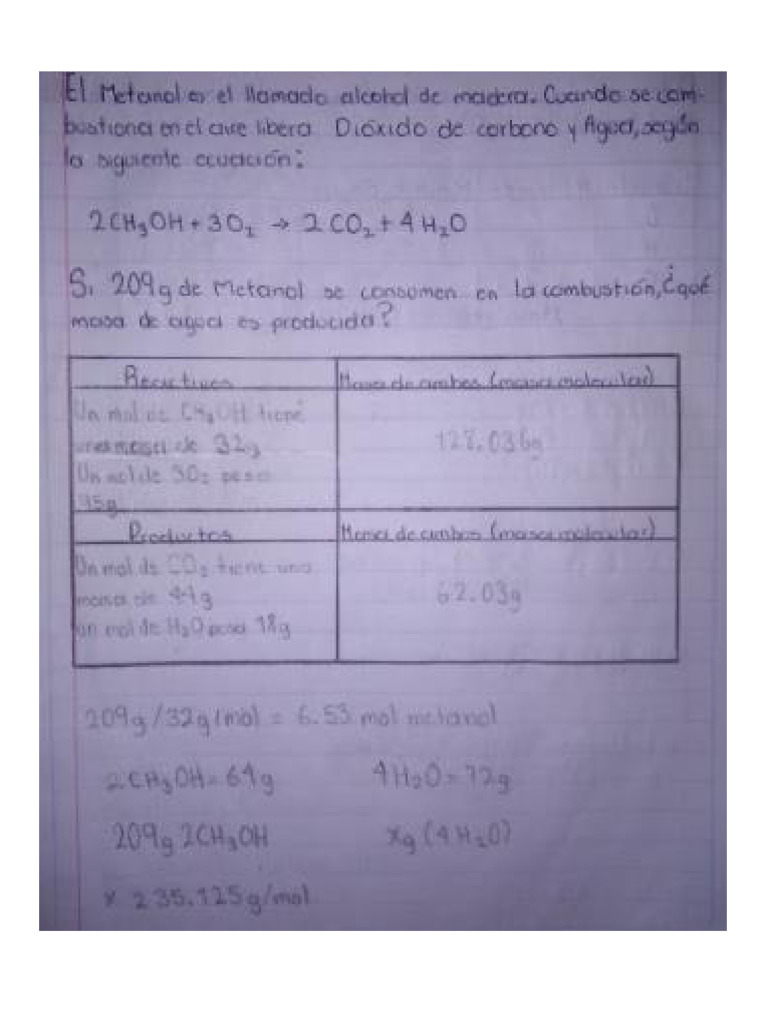 El Metanol es el llamado alcohol de madera. Cuando se com-
bustiona en el aire libera Dióxido de carbono y Agua, según
la siguiente ecuación:
2CH₃OH + 3O₂ → 2CO₂ + 4H₂O
Si 209g de Metanol se consumen en la combustión, ¿qué
masa de agua es producida?
Reactivos
Masa de ambos (masa molecular)
Un mol de CH₃OH tiene
una masa de 32g
Un mol de 3O₂ pesa
95g
128.036g
Productos
Masa de ambos (masa molecular)
Un mol de CO₂ tiene una
masa de 44g
un mol de H₂O pesa 18g
62.03g
209g/32g/mol = 6.53 mol metanol
2CH₃OH = 64g 4H₂O = 72g
209g 2CH₃OH xg (4H₂O)
x 235.125g/mol